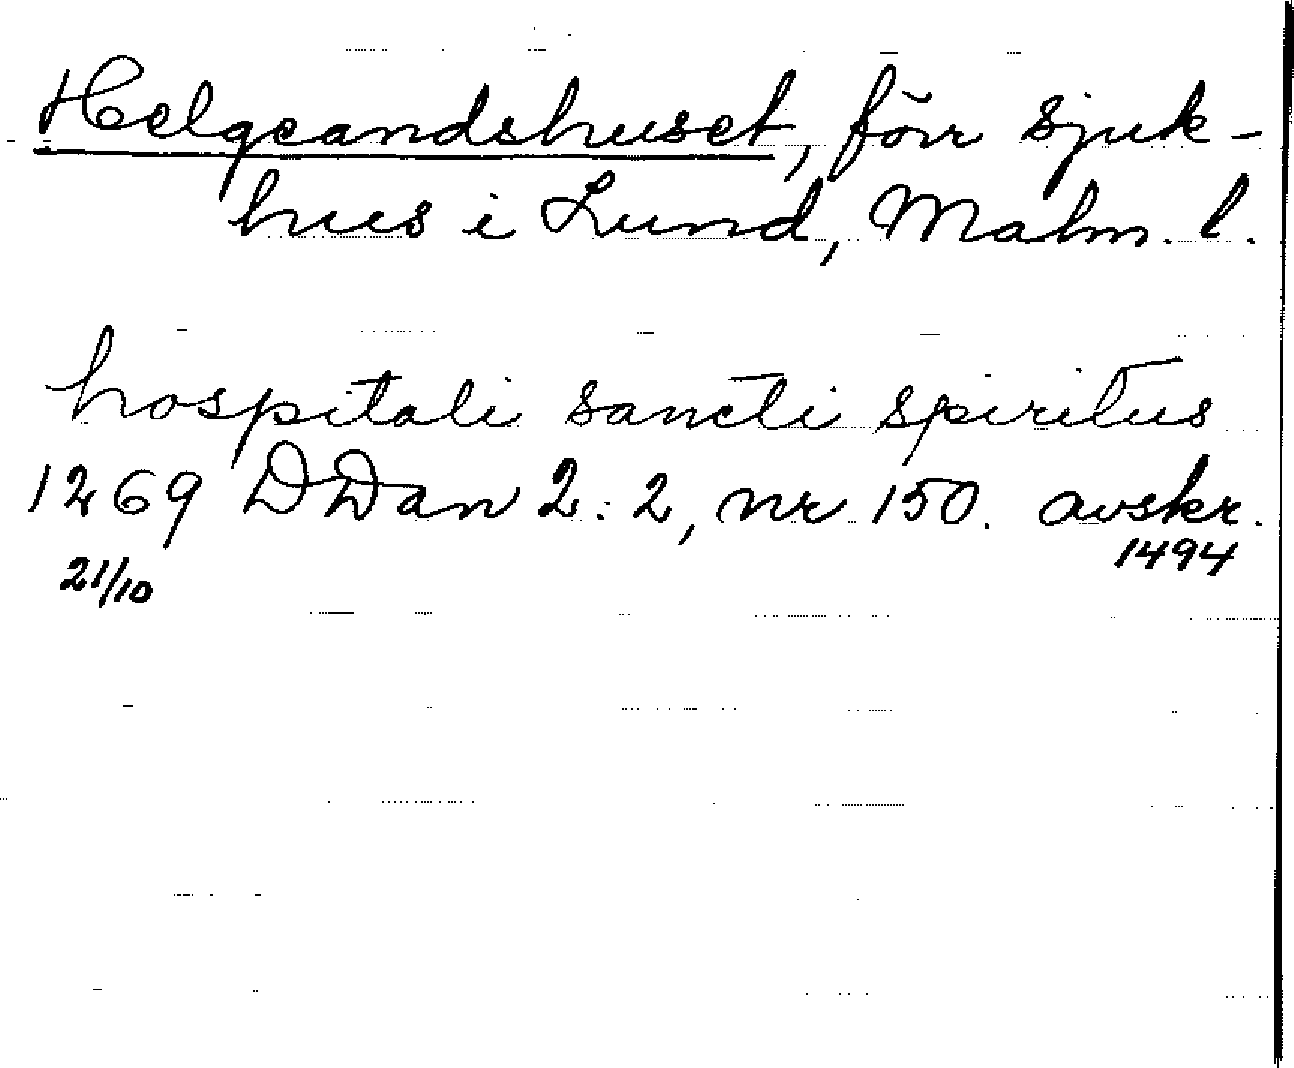 Helgeandshuset, förr sjuk-
hus i Lund, Malm. l.
hospitali sancti spiritus
1269 DDan 2:2, nr 150. avskr.
21/10 1494